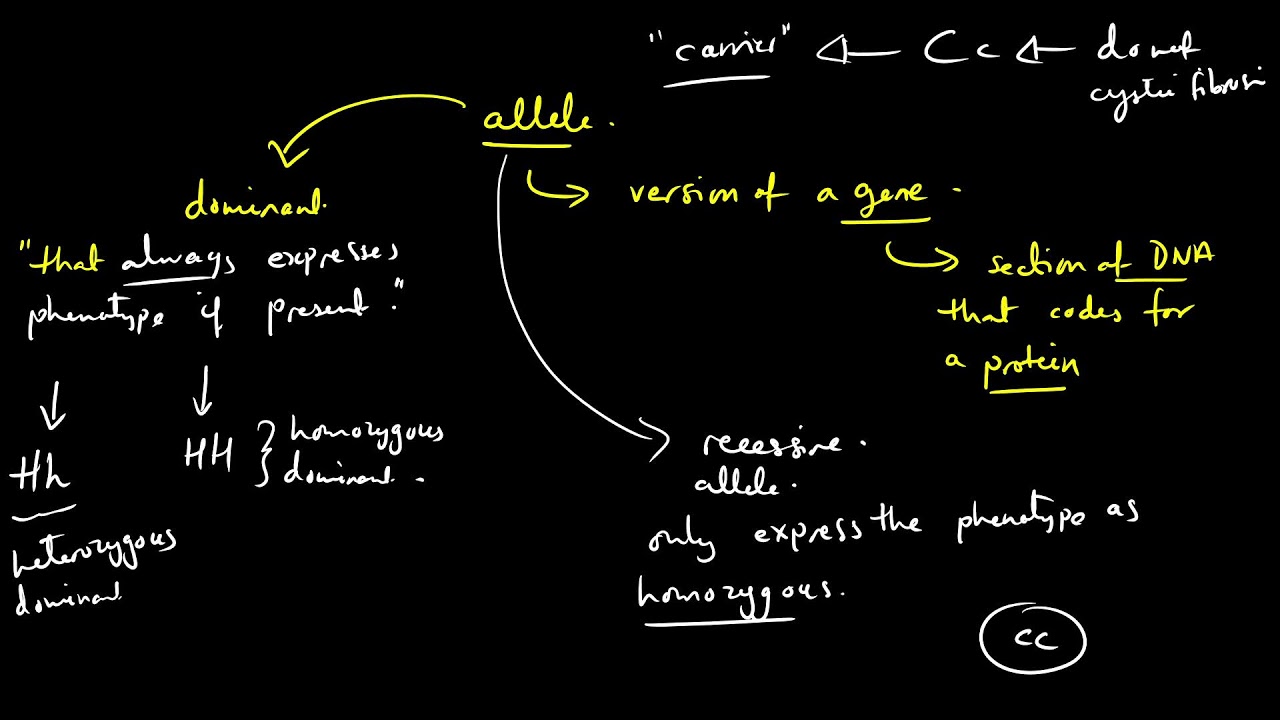 "carrier" ← Cc ← do not
cystic fibrosis
allele.
version of a gene.
dominant.
"that always expresses
phenotype if present."
section of DNA
that codes for
a protein
Hh
HH } homozygous
dominant.
heterozygous
dominant
recessive.
allele.
only express the phenotype as
homozygous.
cc